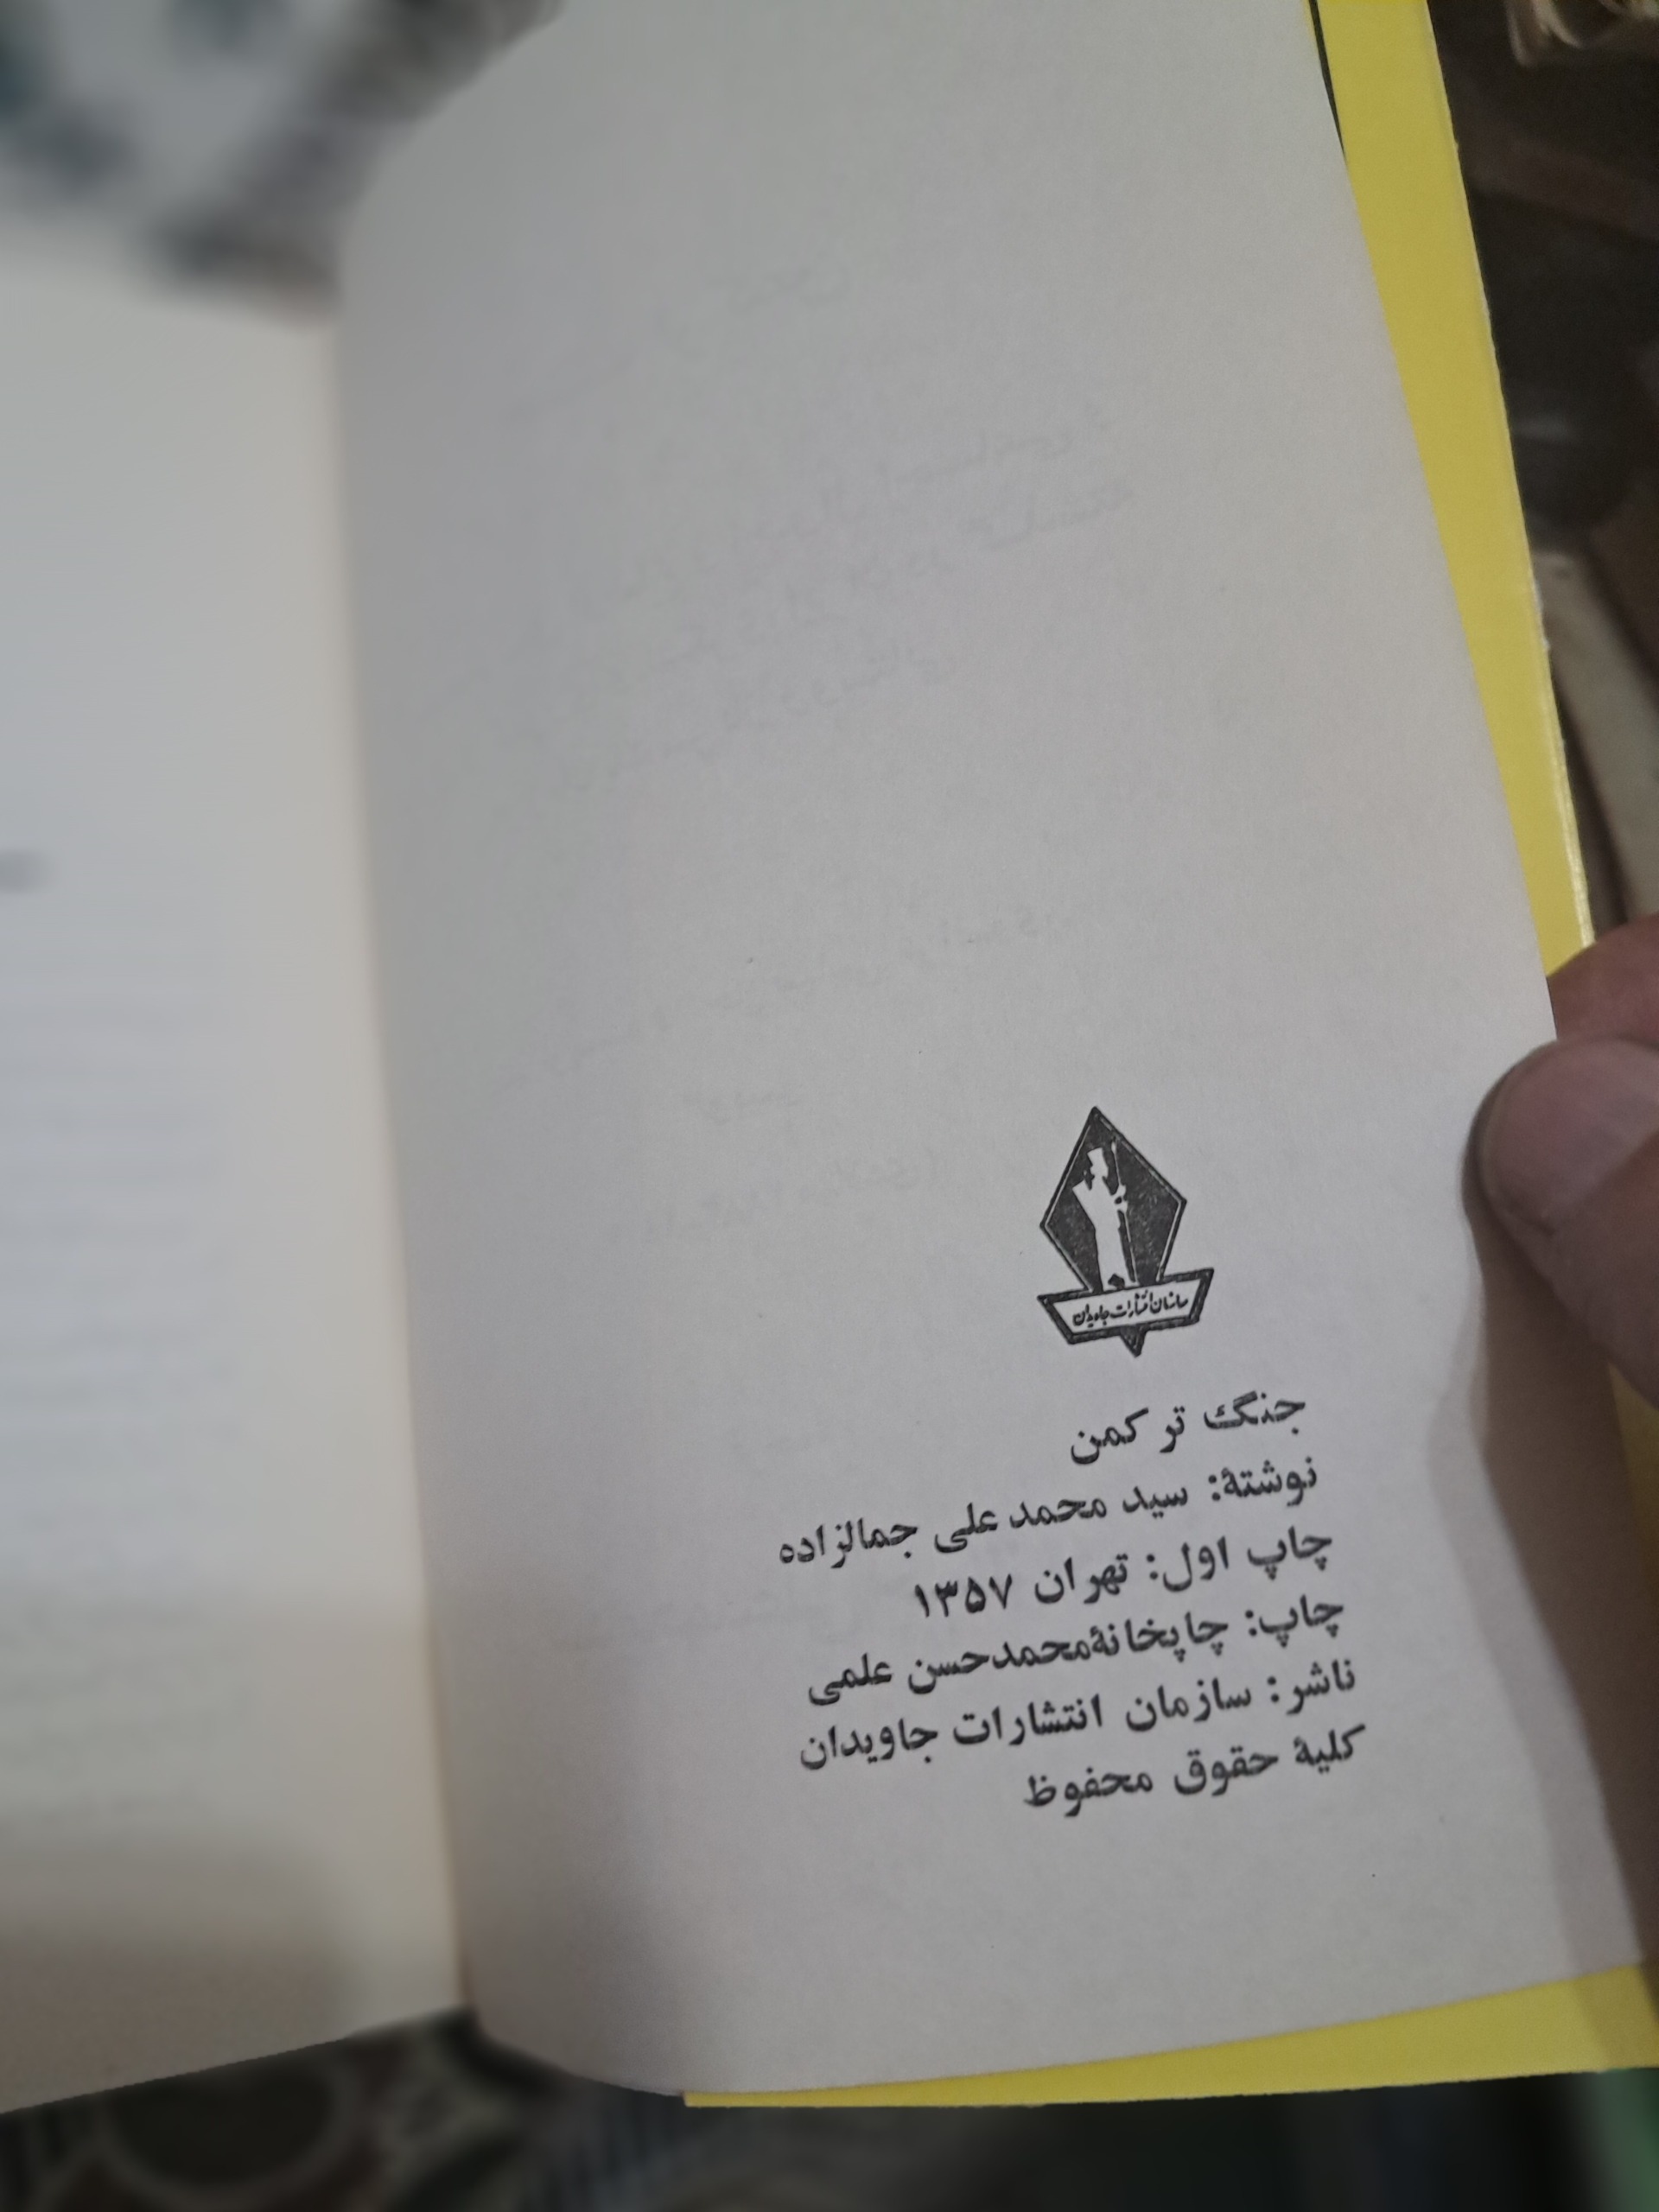 سازمان انتشارات جاویدان
جنگ ترکمن
نوشتهٔ: سید محمد علی جمالزاده
چاپ اول: تهران ۱۳۵۷
چاپ: چاپخانهٔ محمدحسن علمی
ناشر: سازمان انتشارات جاویدان
کلیهٔ حقوق محفوظ